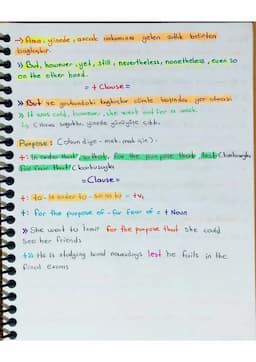 → Ama, yinede, ancak anlamına gelen zıtlık belirten
bağlaçlar.
» But, however, yet, still, nevertheless, nonetheless, even so
on the other hand.
= + Clause =
» But ve yanındaki bağlaçlar cümle başında yer
» It was cold, however, she went out for a walk.
↳ Hava soğuktu yinede yürüyüşe çıktı.
Purpose: (olsun diye - mek, mak için).
+: In order that/ so that, for the purpose that/ lest
for fear that/
= Clause =
+: to - in order to - so as to = +V1
+: for the purpose of - for fear of = + Noun
» She went to İzmir for the purpose that she could
see her friends
+» He is studying hard nowadays lest he fails in the
final exams